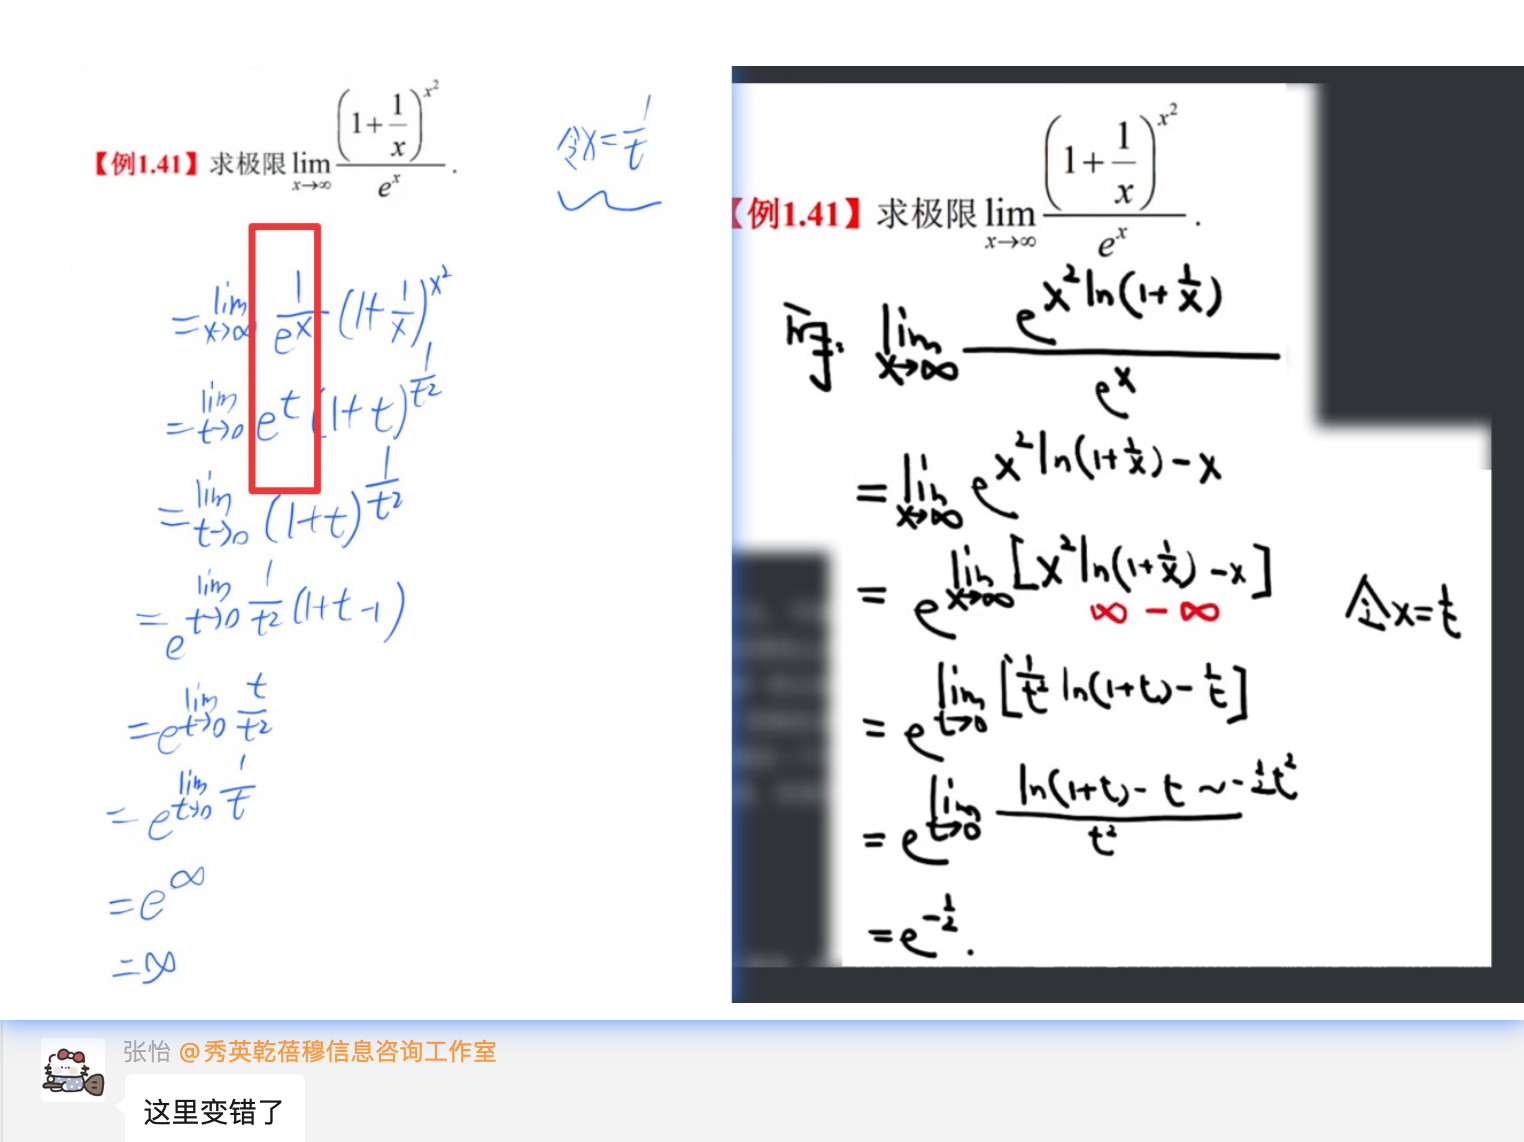 【例1.41】求极限 lim x→∞ (1+1/x)^x² / e^x .
令x=1/t
=lim x→∞ 1/e^x (1+1/x)^x²
=lim t→0 e^t (1+t)^1/t²
=lim t→0 (1+t)^1/t²
=e^lim t→0 1/t² (1+t-1)
=e^lim t→0 t/t²
=e^lim t→0 1/t
=e^∞
=∞
【例1.41】求极限 lim x→∞ (1+1/x)^x² / e^x .
lim x→∞ e^x²ln(1+1/x) / e^x
=lim x→∞ e^x²ln(1+1/x)-x
=e^lim x→∞ [x²ln(1+1/x)-x]
∞-∞
令x=1/t
=e^lim t→0 [1/t² ln(1+t)-1/t]
=e^lim t→0 ln(1+t)-t~-1/2t² / t²
=e^-1/2.
张怡 @秀英乾蓓穆信息咨询工作室
这里变错了